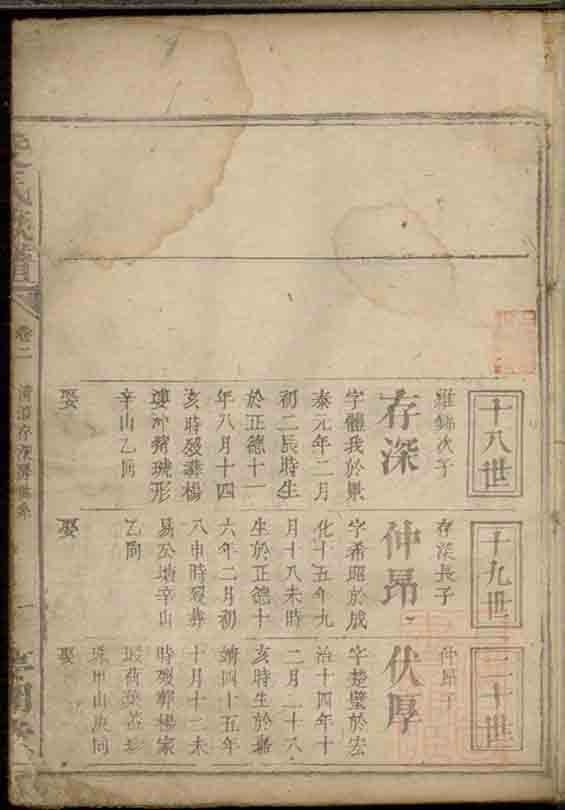 十八世
羅錦次子
存深
字體我於景
泰元年二月
初二辰時生
於正德十一
年八月十四
亥時歿葬楊
形
辛山乙向
娶
十九世
存深長子
仲昂
字希昭於成
化十五年九
月十八未時
生於正德十
六年二月初
八申時歿葬
易公塘辛山
乙向
娶
二十世
仲昂子
伏厚
字楚璧於宏
治十四年十
二月二十八
亥時生於嘉
靖四十五年
十月十二未
時歿葬楊家
山庚向
娶
氏族譜
卷二
存深房世系
一